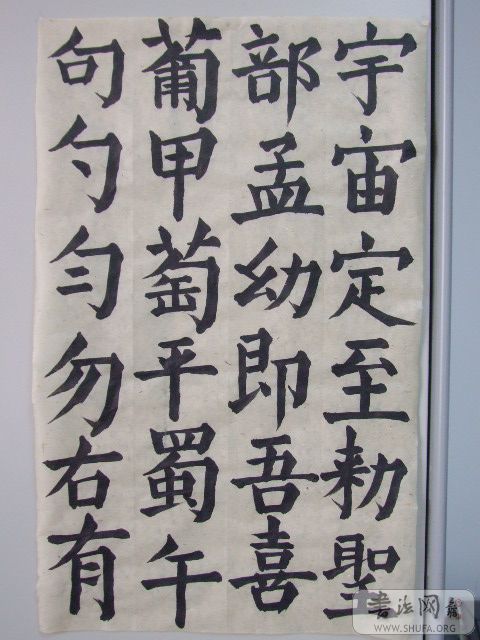 宇宙定至勑聖
部孟幼即吾喜
葡甲萄平蜀午
句勺匀勿右有
書法网
WWW.SHUFA.ORG